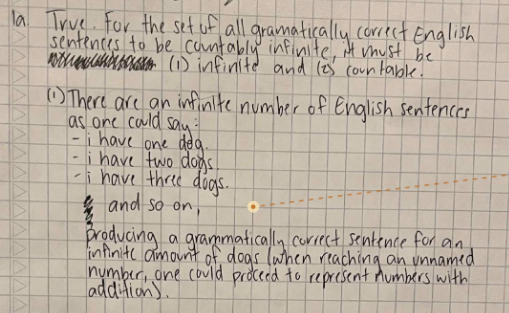 1a. True. For the set of all gramatically correct English
sentences to be countably infinite, it must be
(1) infinite and (2) countable.
(1) There are an infinite number of English sentences
as one could say:
- i have one dog.
- i have two dogs.
- i have three dogs.
and so on,
producing a grammatically correct sentence for an
infinite amount of dogs (when reaching an unnamed
number, one could proceed to represent numbers with
addition).